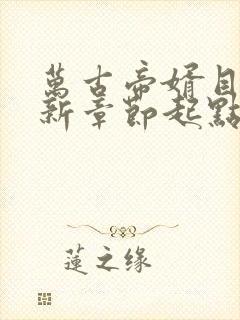 萬古帝婿目
新章節起點
蓮之缘